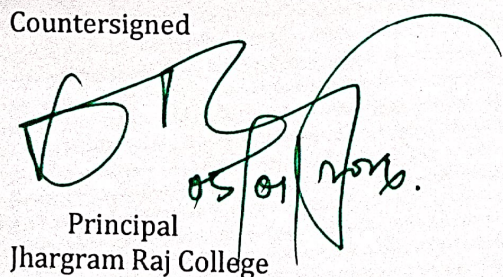 Countersigned
Principal
Jhargram Raj College